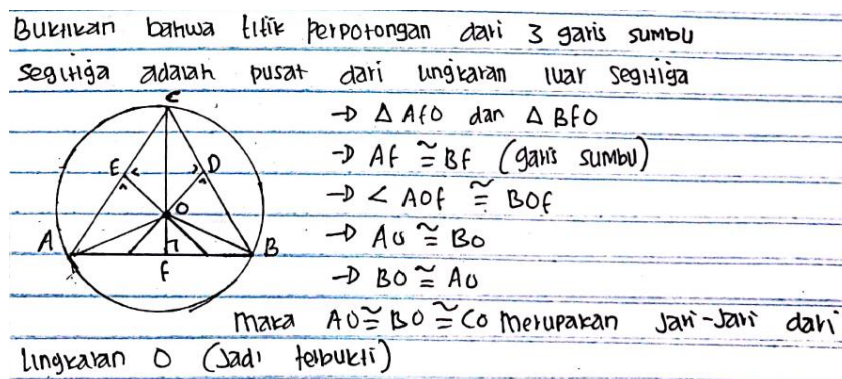 Buktikan bahwa titik perpotongan dari 3 garis sumbu
segitiga adalah pusat dari lingkaran luar segitiga
C
→ △ AFO dan △ BFO
E D
→ AF ≅ BF (garis sumbu)
O
→ < AOF ≅ BOF
A B
→ AO ≅ BO
F
→ BO ≅ AO
Maka AO ≅ BO ≅ CO merupakan jari-jari dari
lingkaran O (Jadi terbukti)